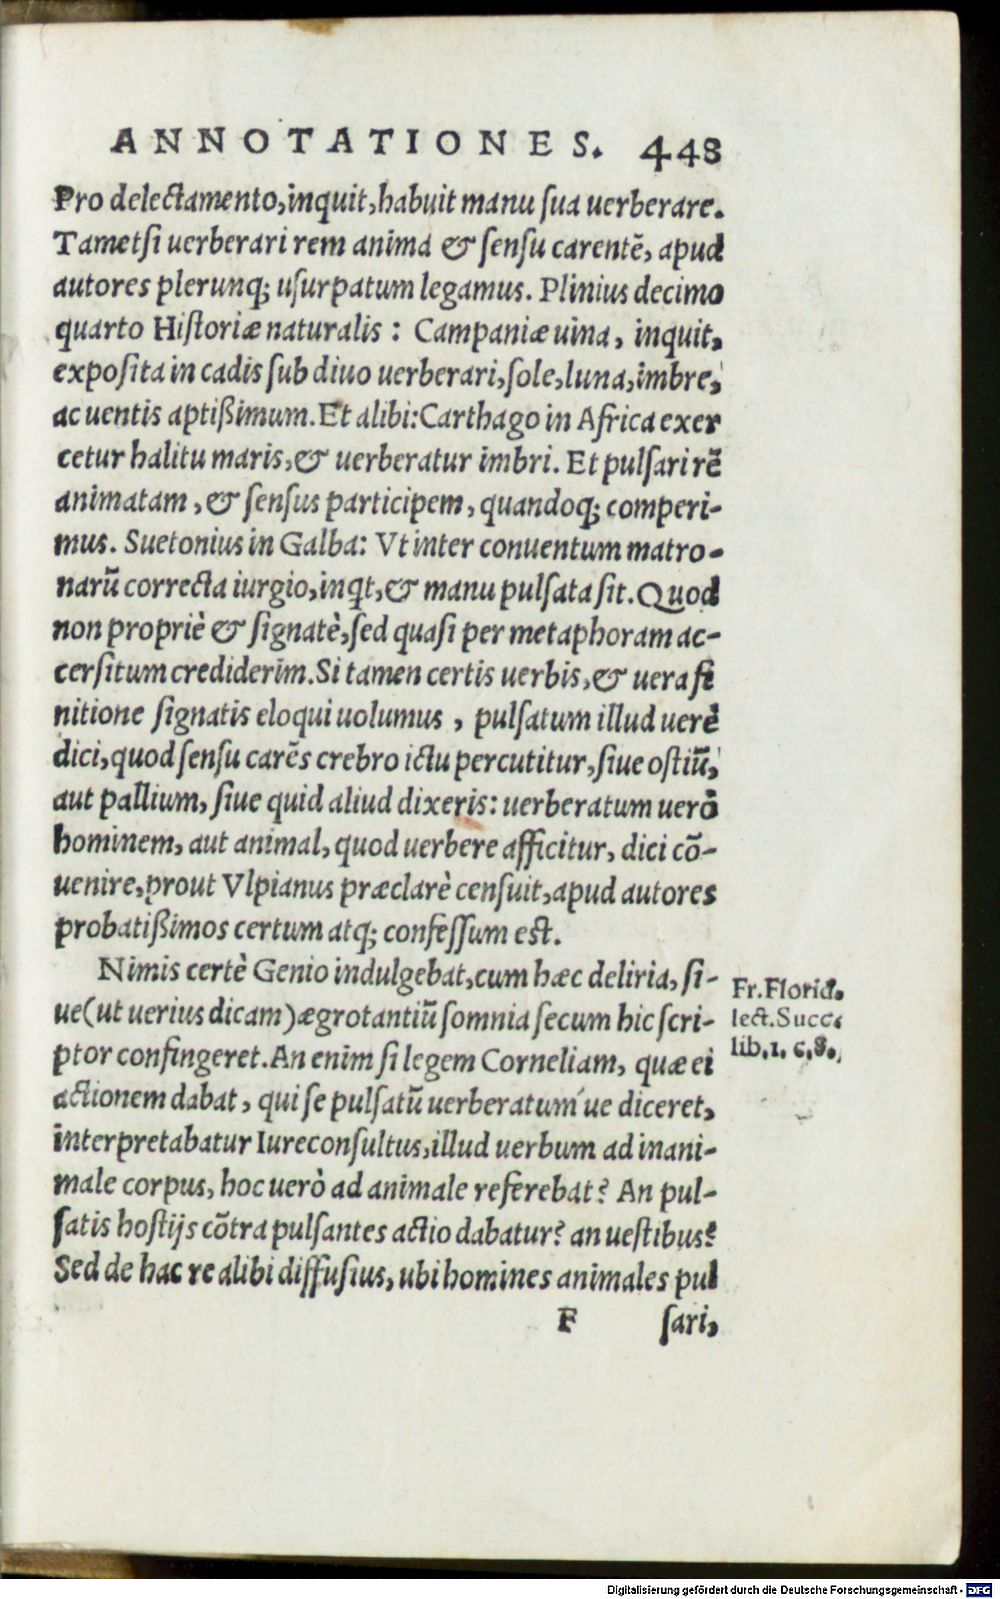 ANNOTATIONES. 448
Pro delectamento, inquit, habuit manu sua uerberare.
Tametsi uerberari rem anima & sensu carentē, apud
autores plerunq; usurpatum legamus. Plinius decimo
quarto Historiæ naturalis : Campaniæ uina, inquit,
exposita in cadis sub diuo uerberari, sole, luna, imbre,
ac uentis aptißimum. Et alibi: Carthago in Africa exer
cetur halitu maris, & uerberatur imbri. Et pulsari rē
animatam, & sensus participem, quandoq; comperi-
mus. Suetonius in Galba: Vt inter conuentum matro-
narū correcta iurgio, inqt, & manu pulsata sit. Quod
non propriè & signatè, sed quasi per metaphoram ac-
cersitum crediderim. Si tamen certis uerbis, & uera fi
nitione signatis eloqui uolumus, pulsatum illud uerè
dici, quod sensu carēs crebro ictu percutitur, siue ostiū,
aut pallium, siue quid aliud dixeris: uerberatum uerò
hominem, aut animal, quod uerbere afficitur, dici cō-
uenire, prout Vlpianus præclarè censuit, apud autores
probatißimos certum atq; confessum est.
Nimis certè Genio indulgebat, cum hæc deliria, si-
ue (ut uerius dicam) ægrotantiū somnia secum hic scri-
ptor confingeret. An enim si legem Corneliam, quæ ei
actionem dabat, qui se pulsatū uerberatum´ue diceret,
interpretabatur Iureconsultus, illud uerbum ad inani-
male corpus, hoc uerò ad animale referebat? An pul-
satis hostijs cōtra pulsantes actio dabatur? an uestibus?
Sed de hac re alibi diffusius, ubi homines animales pul
F sari,
Fr. Florid.
lect. Succ.
lib. 1. c. 8.
Digitalisierung gefördert durch die Deutsche Forschungsgemeinschaft - DFG